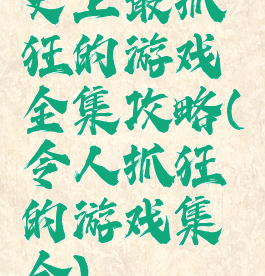 史上最抓
狂的游戏
全集攻略(
令人抓狂
的游戏集
合)